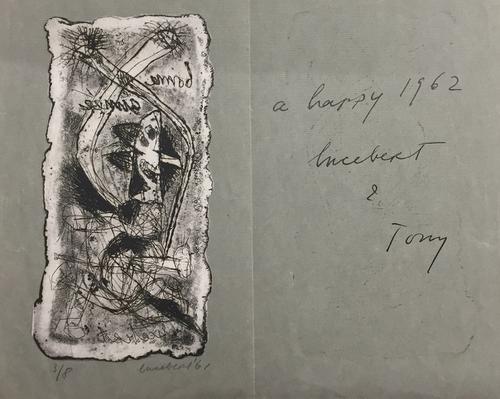 bonne
année
3/8
lucebert '61
a happy 1962
lucebert
&
Tony